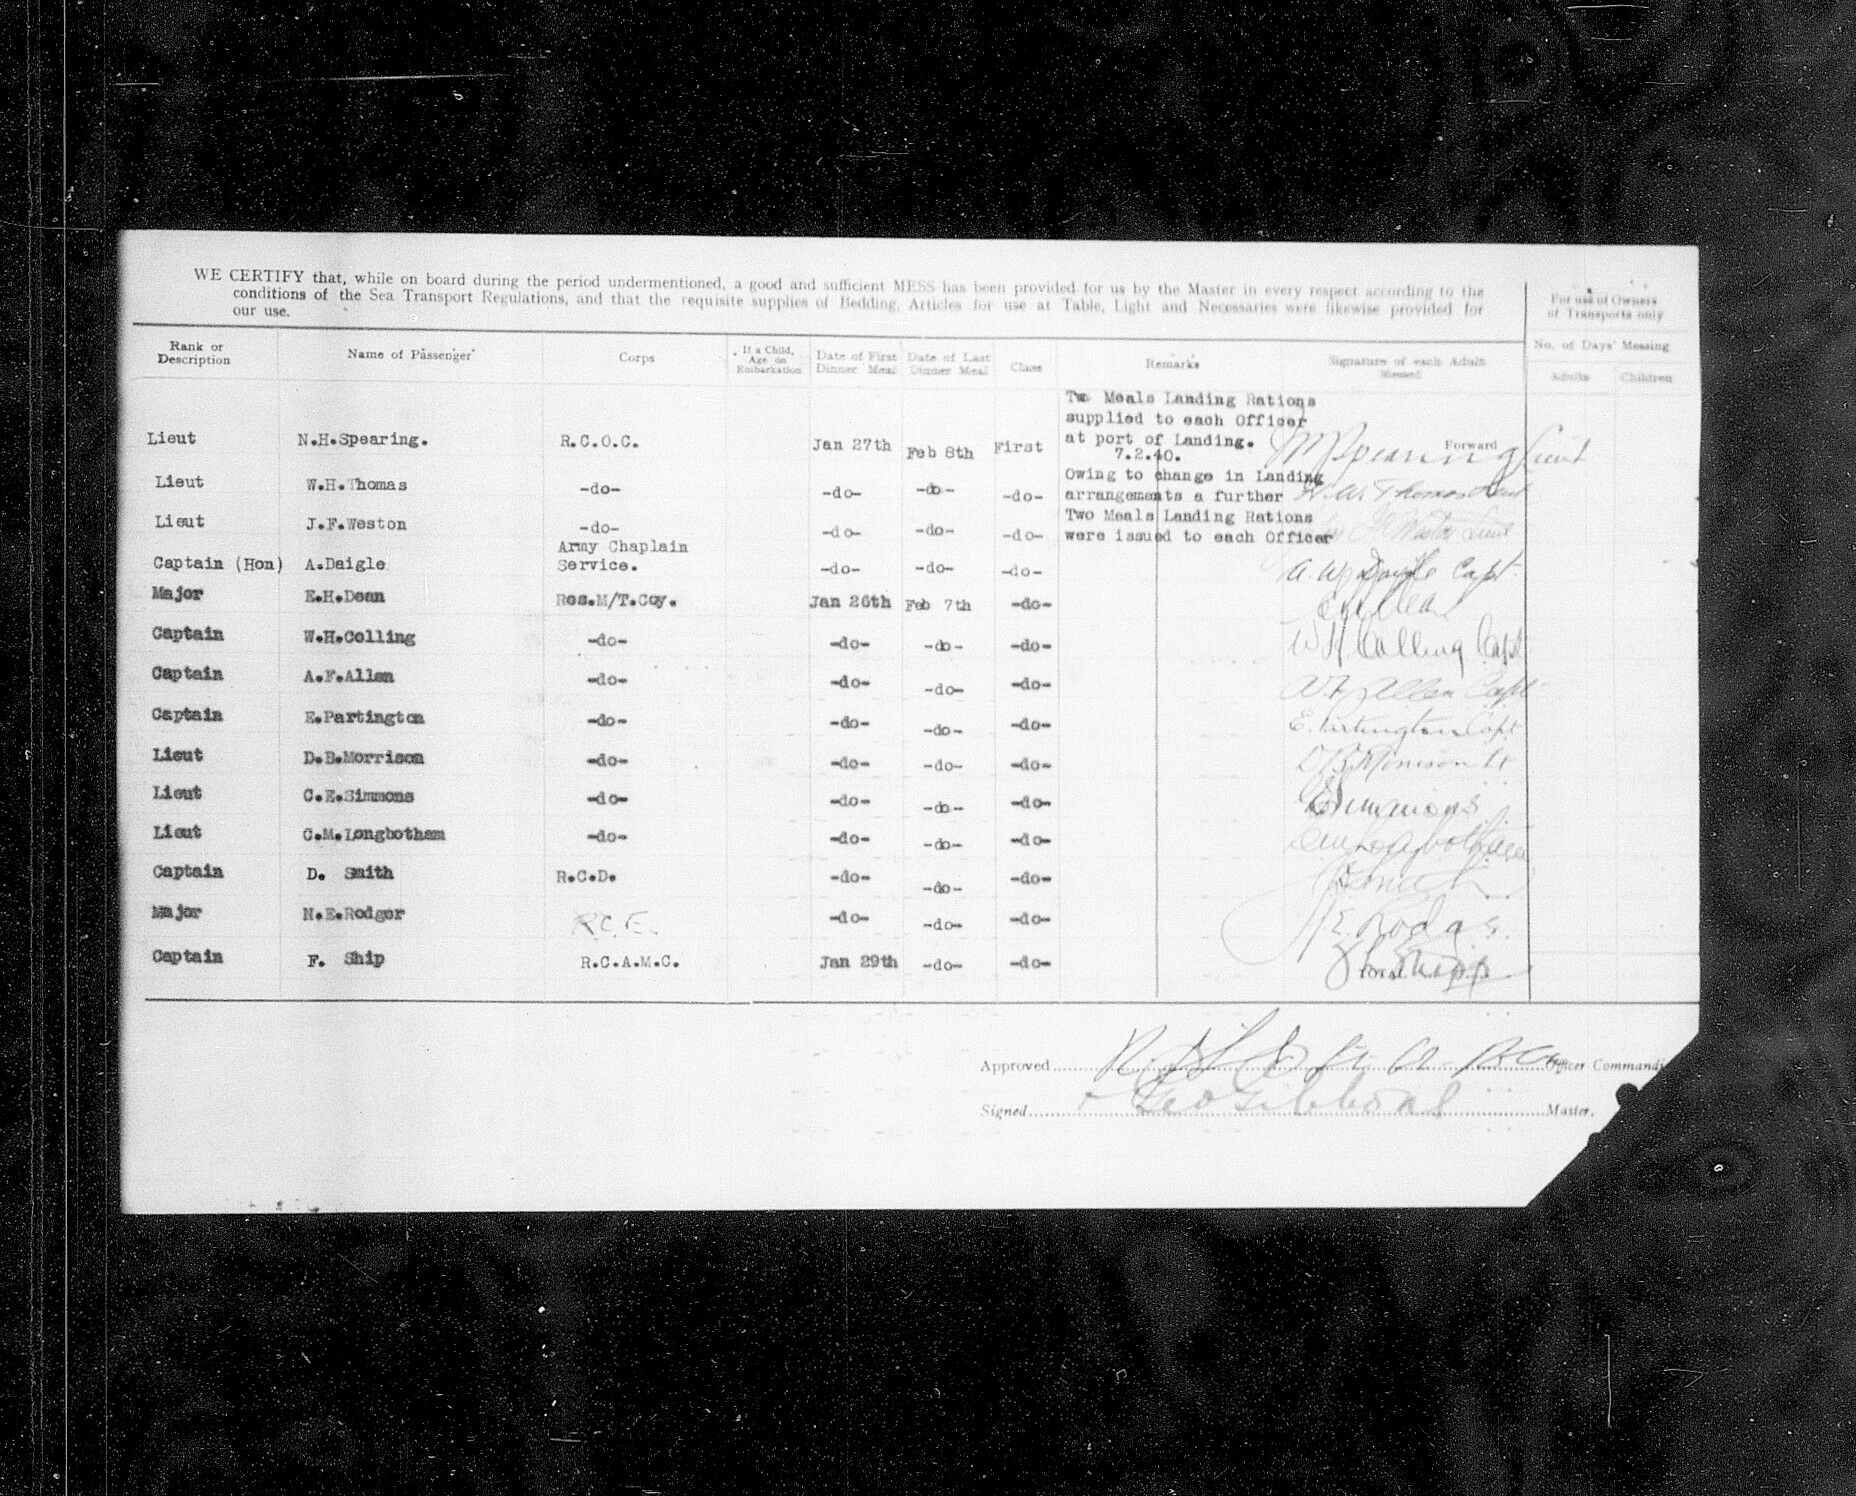 WE CERTIFY that, while on board during the period undermentioned, a good and sufficient MESS has been provided for us by the Master in every respect according to the
conditions of the Sea Transport Regulations, and that the requisite supplies of Bedding, Articles for use at Table, Light and Necessaries were likewise provided for
our use.
For use of Owners
of Transports only
Rank or
Description
Name of Passenger
Corps
If a Child,
Age on
Embarkation
Date of First
Dinner Meal
Date of Last
Dinner Meal
Class
Remarks
Signature of each Adult
Messed
No. of Days' Messing
Adults Children
Two Meals Landing Rations
supplied to each Officer
at port of Landing.
7.2.40.
Owing to change in Landing
arrangements a further
Two Meals Landing Rations
were issued to each Officer
Forward
Lieut N.H.Spearing. R.C.O.C. Jan 27th Feb 8th First Spearing Lieut
Lieut W.H.Thomas -do- -do- -do- -do- W.H. Thomas Lieut
Lieut J.F.Weston -do- -do- -do- -do- Weston Lieut
Captain (Hon) A.Daigle Army Chaplain Service. -do- -do- -do- Capt.
Major E.H.Dean Res.M/T.Coy. Jan 26th Feb 7th -do- Dean
Captain W.H.Colling -do- -do- -do- -do- W H Colling Capt
Captain A.F.Allen -do- -do- -do- -do- A F Allen Capt
Captain E.Partington -do- -do- -do- -do- E. Partington Capt
Lieut D.B.Morrison -do- -do- -do- -do- D B Morrison Lt
Lieut C.E.Simmons -do- -do- -do- -do- CESimmons
Lieut C.M.Longbotham -do- -do- -do- -do- Longbotham
Captain D. Smith R.C.D. -do- -do- -do- Smith
Major N.E.Rodger R.C.E. -do- -do- -do- N E Rodger
Captain F. Ship R.C.A.M.C. Jan 29th -do- -do-
Approved Officer Commandi
Signed Geo Gibbons Master.